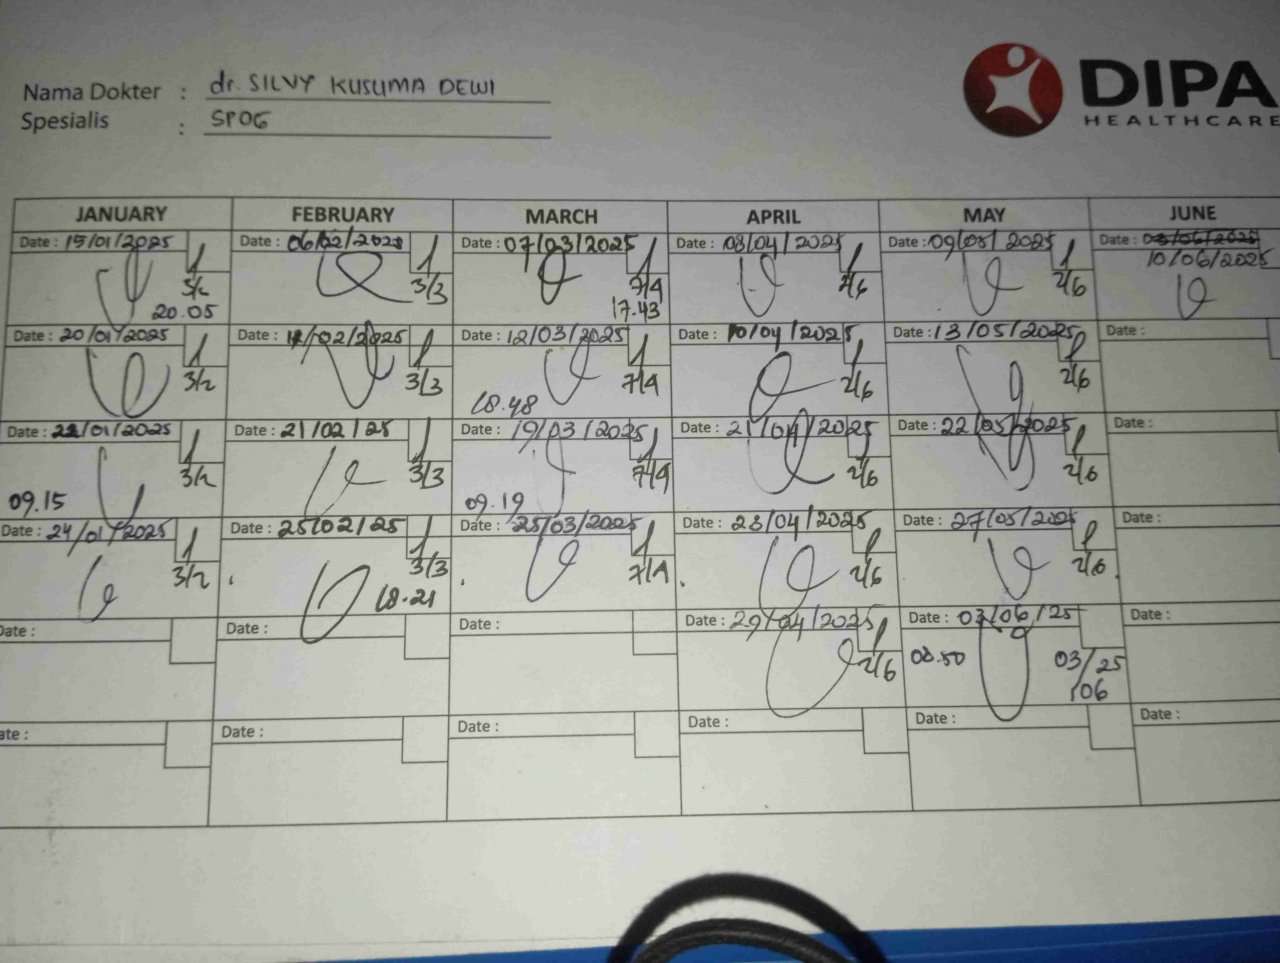 Nama Dokter : dr. SILVY KUSUMA DEWI
Spesialis : SPOG
DIPA
HEALTHCARE
JANUARY FEBRUARY MARCH APRIL MAY JUNE
Date : 15/01/2025 Date : 06/02/2025 Date : 07/03/2025 Date : 08/04/2025 Date : 09/05/2025 Date : 03/06/2025
10/06/2025
3/2 3/3 7/4 2/6 2/6
20.05 17.43
Date : 20/01/2025 Date : 12/02/2025 Date : 12/03/2025 Date : 10/04/2025 Date : 13/05/2025 Date :
3/2 3/3 7/4 2/6 2/6
18.48
Date : 22/01/2025 Date : 21/02/25 Date : 19/03/2025 Date : 21/04/2025 Date : 22/05/2025 Date :
3/2 3/3 7/4 2/6 2/6
09.15 09.19
Date : 24/01/2025 Date : 25/02/25 Date : 25/03/2025 Date : 28/04/2025 Date : 27/05/2025 Date :
3/2 3/3 7/4 2/6 2/6
18.21
Date : Date : Date : Date : 29/04/2025 Date : 03/06/25 Date :
2/6 08.50 03/25
/06
Date : Date : Date : Date : Date : Date :